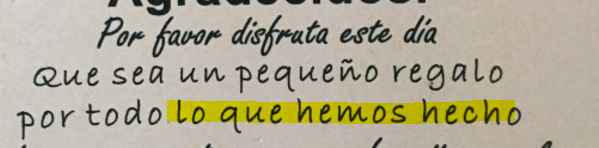 Por favor disfruta este día
Que sea un pequeño regalo
por todo lo que hemos hecho